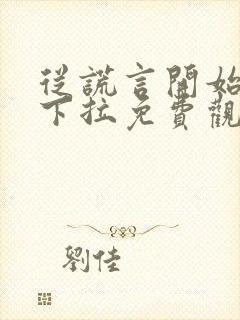 從謊言開始
下拉免費觀
劉佳